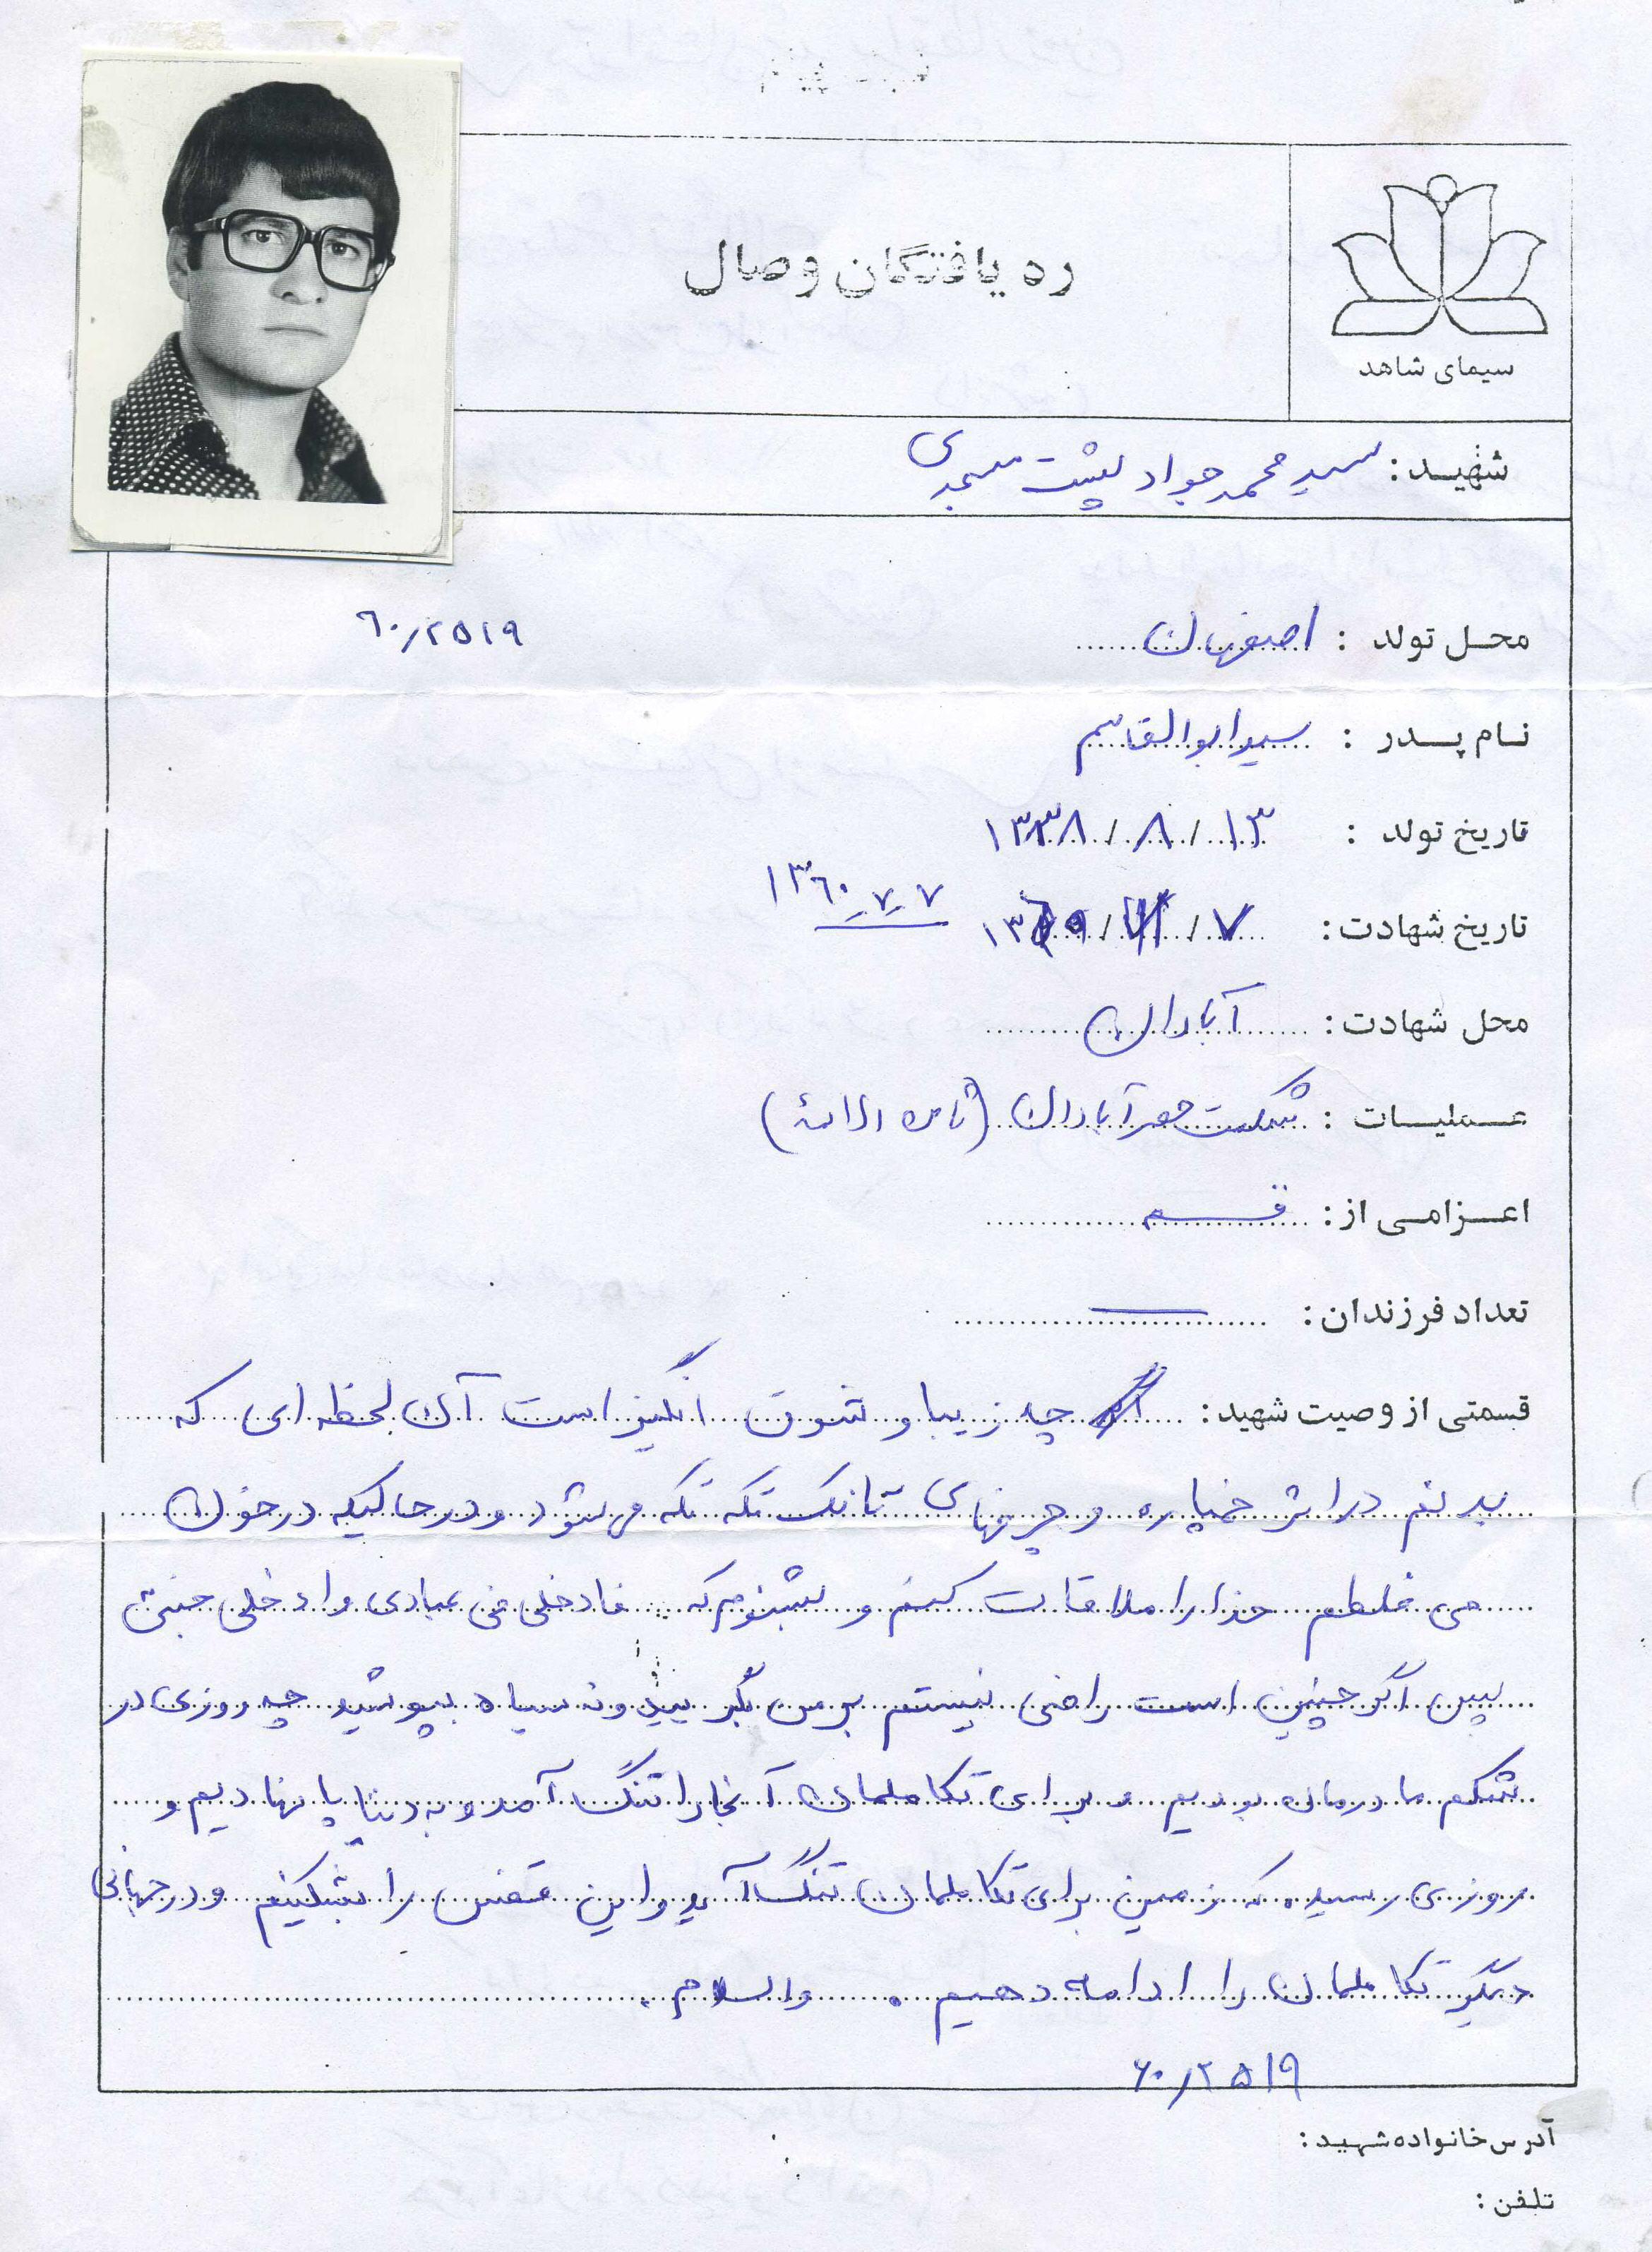 ره یافتگان وصال
سیمای شاهد
شهید: سید محمد جواد پشت مسجدی
محل تولد : اصفهان
۶۰/۲۵۱۹
نام پدر : سید ابوالقاسم
تاریخ تولد : ۱۳ / ۸ / ۱۳۳۸
۱۳۶۰/۷/۷
تاریخ شهادت: ۷ / ۷ / ۱۳۶۰
محل شهادت: آبادان
عملیات : شکست حصر آبادان (ثامن الائمه)
اعزامی از: قم
تعداد فرزندان: ـــ
قسمتی از وصیت شهید: چه زیبا و شوق انگیز است آن لحظه ای که
بدنم در اثر خمپاره و چرخهای تانک تکه تکه می شود و در حالیکه در خون
می غلطم خدا را ملاقات کنم و بشنوم که فادخلی فی عبادی وادخلی جنتی
پس اگر چنین است راضی نیستم بر من بگریید و نه سیاه بپوشید چه روزی در
شکم مادرمان بودیم و برای تکاملمان آنجا را تنگ آمد و به دنیا پا نهادیم و
روزی رسیده که زمین برای تکاملمان تنگ آید و این قفس را بشکنیم و در جهانی
دیگر تکاملمان را ادامه دهیم . والسلام .
۶۰/۲۵۱۹
آدرس خانواده شهید:
تلفن :